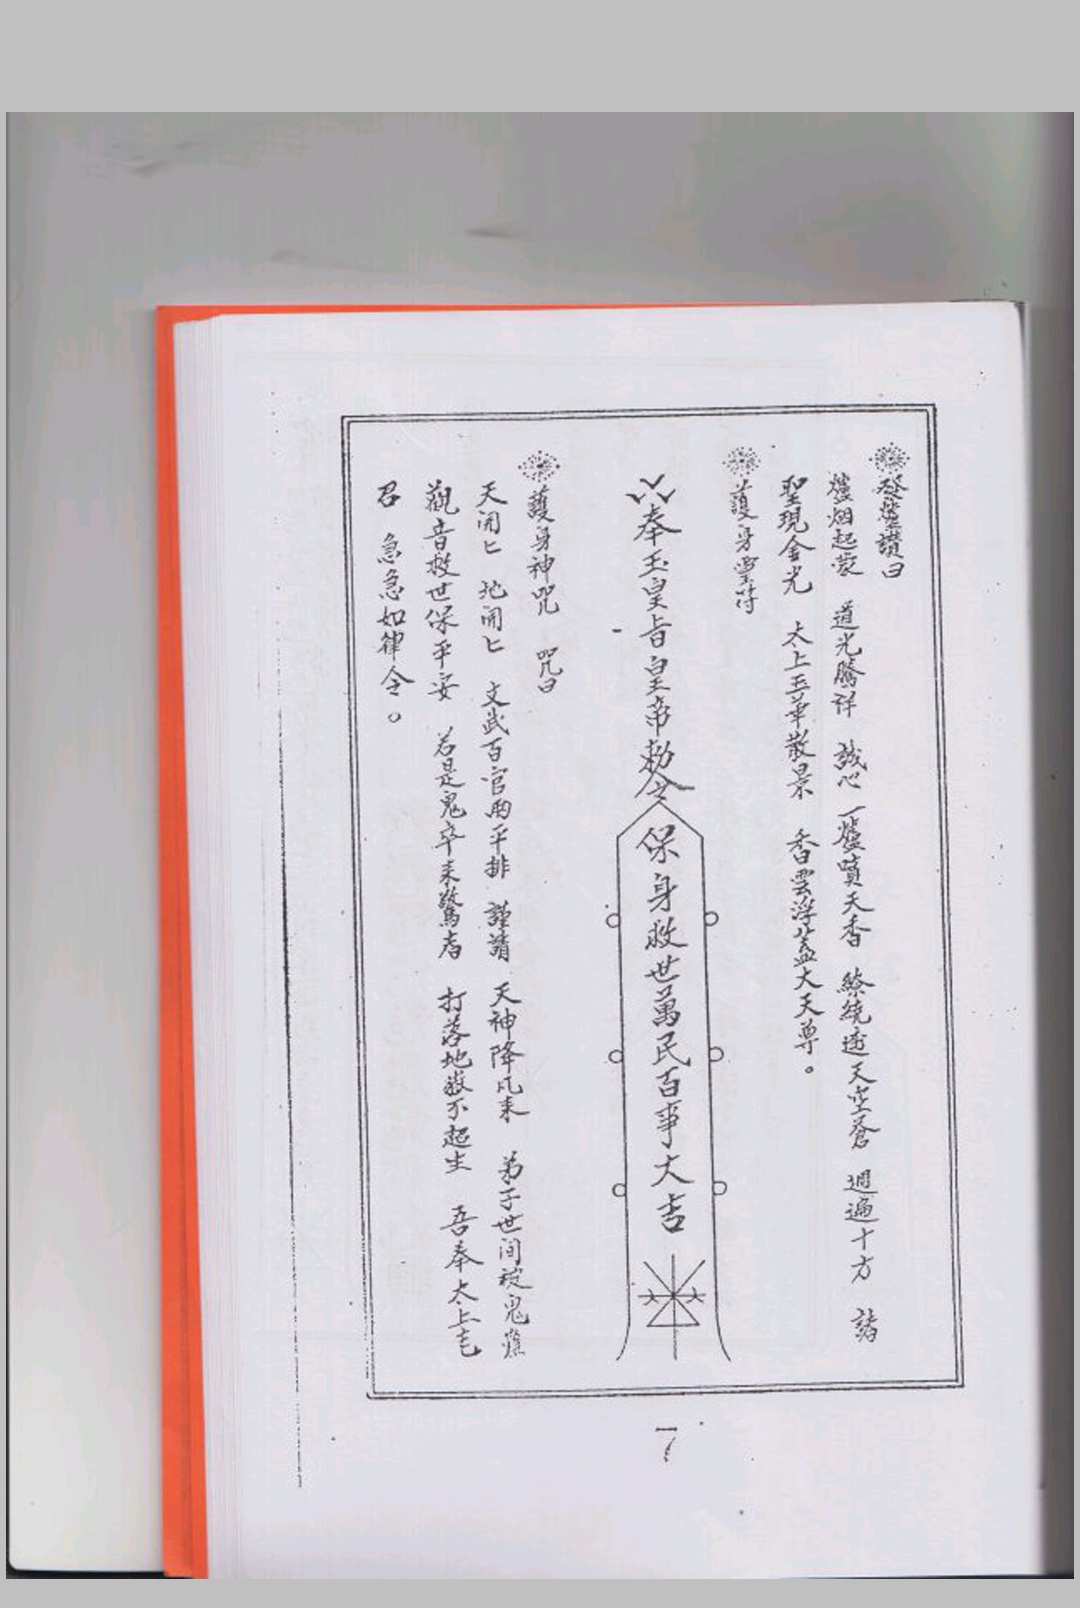 發爐讚曰
爐烟起蒙 道光騰祥 誠心一爐噴天香 繚繞透天空蒼 週遍十方 諸
聖現金光 太上玉華散景 香雲浮蓋大天尊。
護身靈符
奉玉皇旨皇帝勅令
保身救世萬民百事大吉
護身神咒 咒曰
天開匕 地開匕 文武百官兩平排 謹請 天神降凡來 弟子世间被鬼
觀音救世保平安 若是鬼卒来驚者 打落地獄不超生 吾奉太上老
君 急急如律令。
7